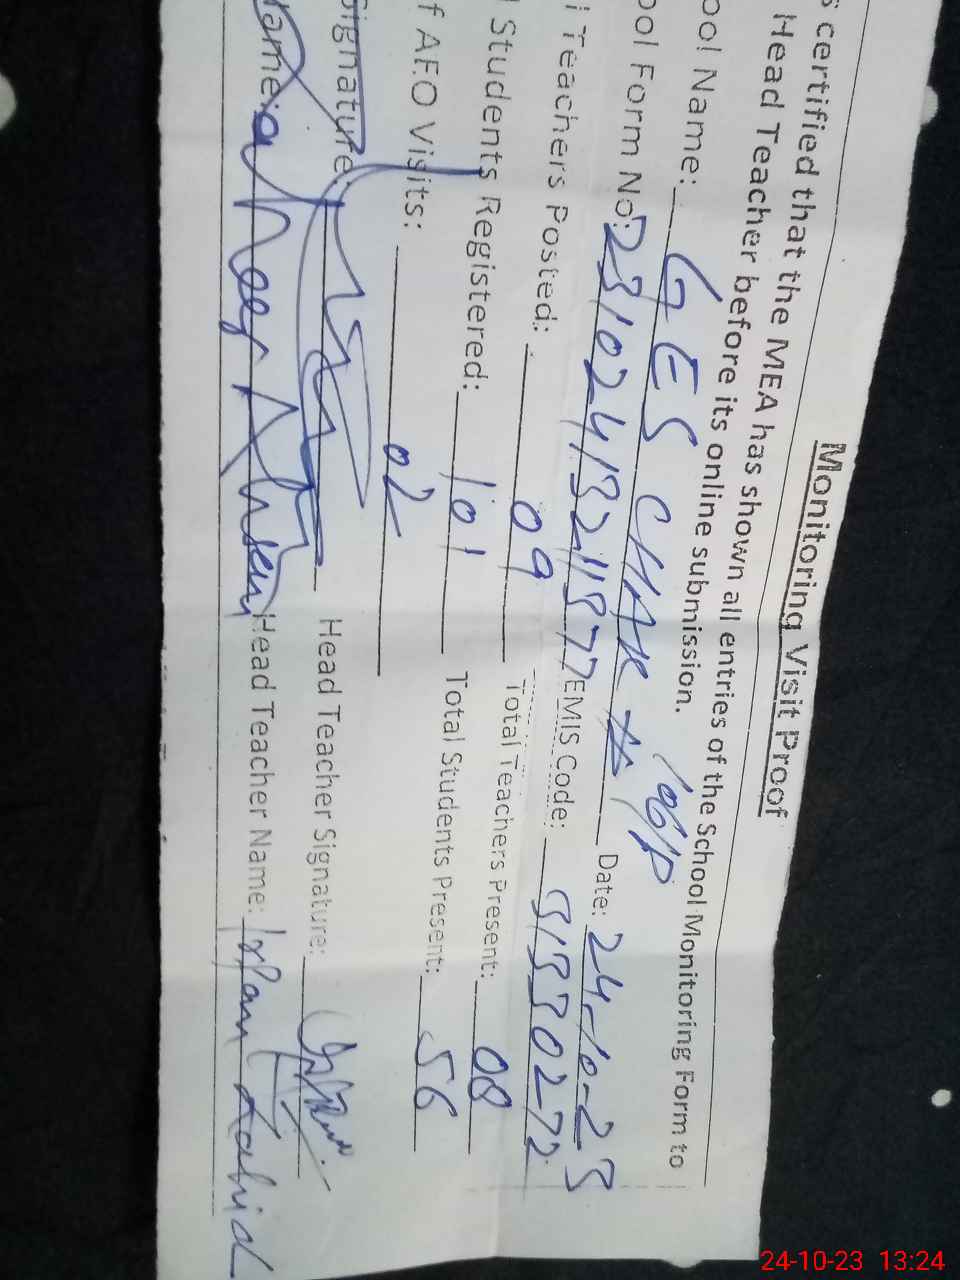 Monitoring Visit Proof
s certified that the MEA has shown all entries of the School Monitoring Form to
Head Teacher before its online submission.
ool Name: GES CHAK # 106/P Date: 24-10-23
ool Form No: EMIS Code: 31330272
l Teachers Posted: 09 Total Teachers Present: 08
l Students Registered: 101 Total Students Present: 56
f AEO Visits: 02
Signature: Head Teacher Signature:
Name: Head Teacher Name:
24-10-23 13:24